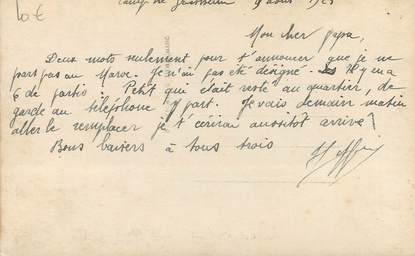 10 €
Camp de 9 août 1925
Mon cher papa,
Deux mots seulement pour t'annoncer que je ne
part pas au Maroc. Je n'ai pas eté désigné. Il y en a
6 de partis. Petit qui était resté au quartier, de
garde au téléphone y part. Je vais demain matin
aller le remplacer je t'ecrirai aussitôt arrivé
Bons baisers à tous trois